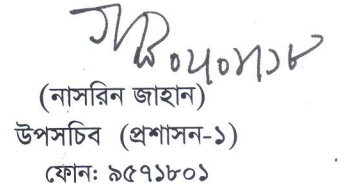 (নাসরিন জাহান)
উপসচিব (প্রশাসন-১)
ফোনঃ ৯৫৭১৮০১